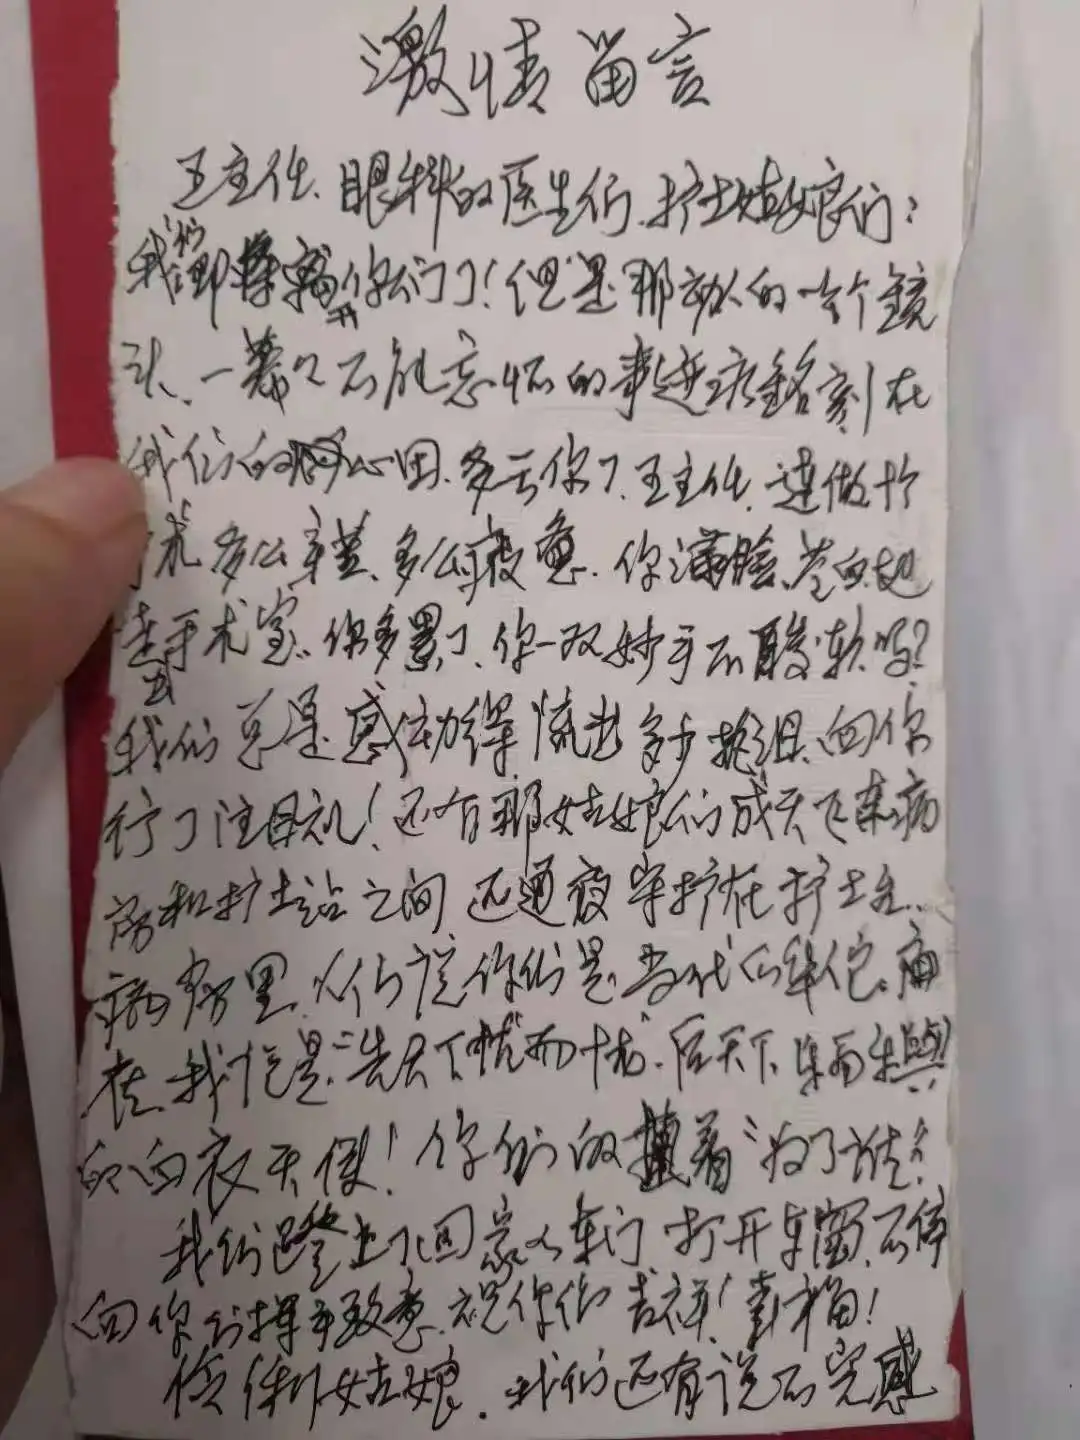 激情留言
王主任、眼科的医生们、护士姑娘们:
我们即将离开你们了!但是那动人的一个个镜
头、一幕幕不能忘怀的事迹永铭刻在
我们的心田、多亏你了、王主任、连做十个
手术多么辛苦、多么疲惫、你满脸苍白地
走出手术室、你多累了、你一双妙手不酸软吗?
我们总是感动得流出多少热泪、向你
行了注目礼!还有那姑娘们成天飞奔病
房和护士站之间 还通夜守护在护士站
病房里、人们说你们是当代的华佗、扁
鹊、我说是“先天下忧而忧、后天下乐而乐”
的白衣天使!你们的 着“为了谁?
我们蹬上了回家的车门 打开车窗、不停
向你们挥手致意、祝你们吉祥!幸福!
姑娘、我们还有说不完感